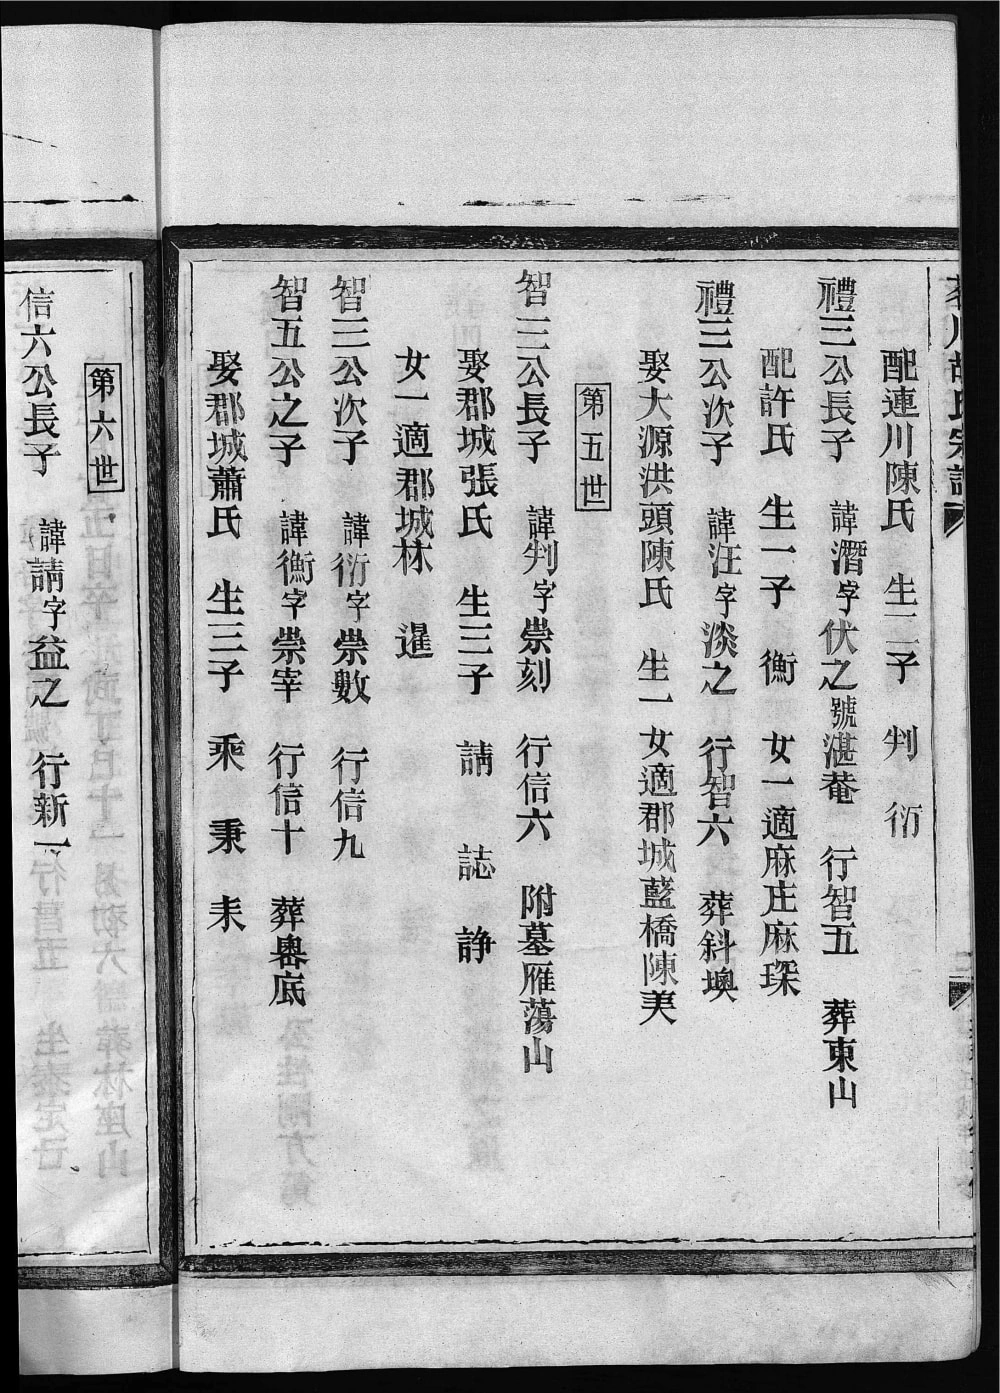 川胡氏宗譜
配連川陳氏 生二子 判 衍
禮三公長子 諱潛字伏之號湛菴 行智五 葬東山
配許氏 生一子 衡 女一適麻庄麻琛
禮三公次子 諱汪字淡之 行智六 葬斜墺
娶大源洪頭陳氏 生一女適郡城藍橋陳美
第五世
智三公長子 諱判字崇刻 行信六 附墓雁蕩山
娶郡城張氏 生三子 請 誌 諍
女一適郡城林 暹
智三公次子 諱衍字崇數 行信九
智五公之子 諱衡字崇宰 行信十 葬嶴底
娶郡城蕭氏 生三子 乘 秉 耒
第六世
信六公長子 諱請字益之 行新一